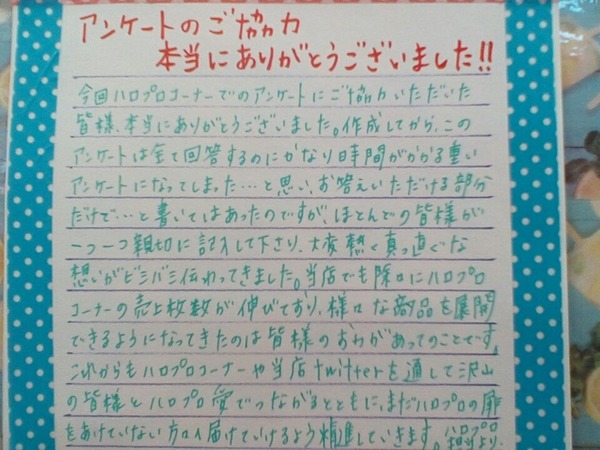 アンケートのご協力
本当にありがとうございました!!
今回ハロプロコーナーでのアンケートにご協力いただいた
皆様、本当にありがとうございました。作成してから、この
アンケートは全て回答するのにかなり時間がかかる重い
アンケートになってしまった…と思い、お答えいただける部分
だけで…と書いてはあったのですが、ほとんどの皆様が
一つ一つ親切に記入して下さり、大変熱く真っ直ぐな
想いがビシバシ伝わってきました。当店でも徐々にハロプロ
コーナーの売上枚数が伸びており、様々な商品を展開
できるようになってきたのは皆様のお力があってのことです。
これからもハロプロコーナーや当店twitterを通して沢山
の皆様とハロプロ愛でつながるとともに、まだハロプロの扉
をあけていない方々へ届けていけるよう精進していきます。ハロプロ
担当より.